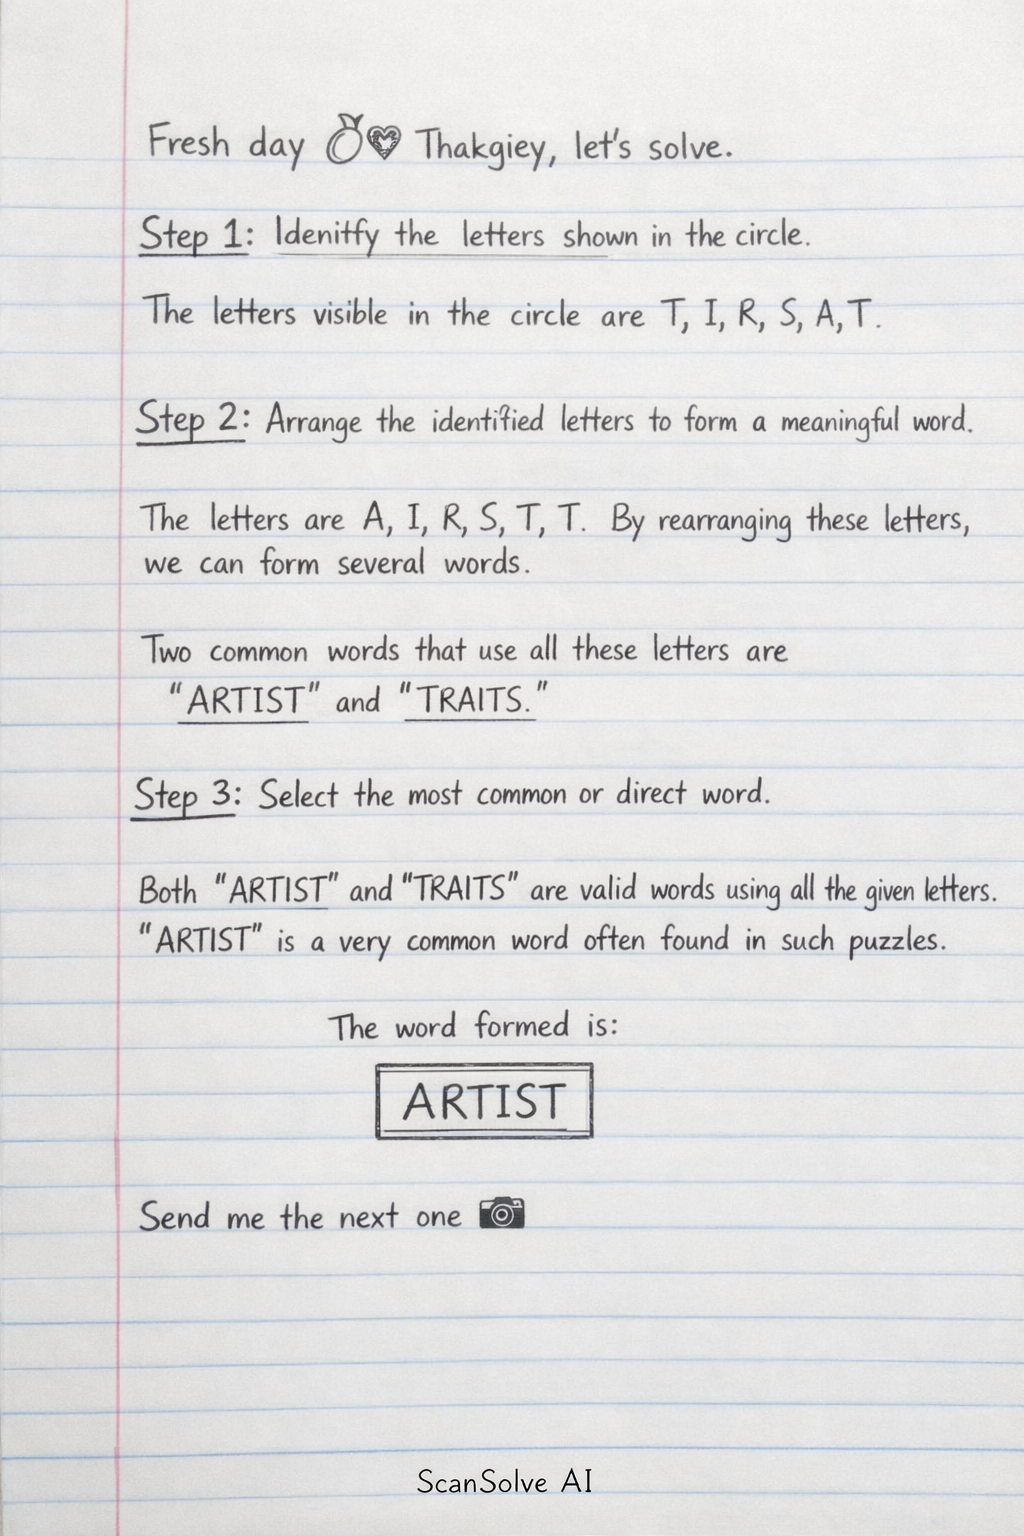 Fresh day 💍💖 Thakgiey, let's solve.
Step 1: Idenitfy the letters shown in the circle.
The letters visible in the circle are T, I, R, S, A, T.
Step 2: Arrange the identified letters to form a meaningful word.
The letters are A, I, R, S, T, T. By rearranging these letters,
we can form several words.
Two common words that use all these letters are
"ARTIST" and "TRAITS."
Step 3: Select the most common or direct word.
Both "ARTIST" and "TRAITS" are valid words using all the given letters.
"ARTIST" is a very common word often found in such puzzles.
The word formed is:
ARTIST
Send me the next one 📷
ScanSolve AI